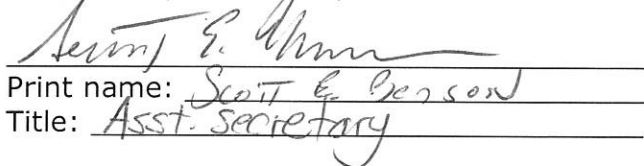 Print name: Scott E. Benson
Title: Asst. Secretary